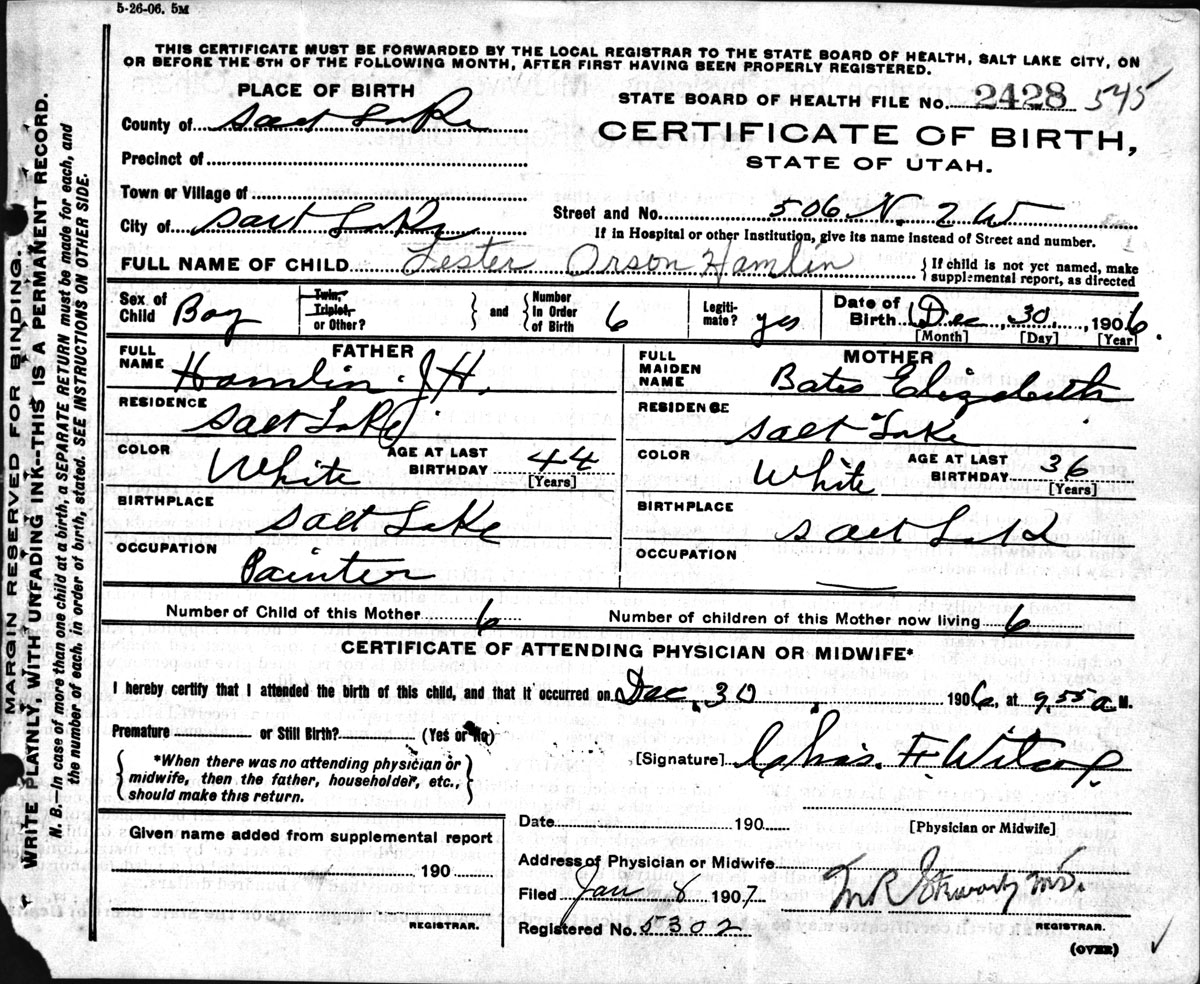 5-26-06. 5M
THIS CERTIFICATE MUST BE FORWARDED BY THE LOCAL REGISTRAR TO THE STATE BOARD OF HEALTH, SALT LAKE CITY, ON
OR BEFORE THE 5TH OF THE FOLLOWING MONTH, AFTER FIRST HAVING BEEN PROPERLY REGISTERED.
PLACE OF BIRTH
STATE BOARD OF HEALTH FILE No. 2428 545
County of Salt Lake
CERTIFICATE OF BIRTH,
STATE OF UTAH.
Precinct of
Town or Village of
City of Salt Lake
Street and No. 506 N. 2 W
If in Hospital or other Institution, give its name instead of Street and number.
FULL NAME OF CHILD Lester Orson Hamlin
If child is not yet named, make
supplemental report, as directed
Sex of Child Boy
Twin, Triplet, or Other?
and
Number In Order of Birth 6
Legiti-mate? yes
Date of Birth Dec, 30, 1906.
[Month] [Day] [Year]
FATHER
FULL NAME Hamlin J.H.
RESIDENCE Salt Lake
COLOR White
AGE AT LAST BIRTHDAY 44
[Years]
BIRTHPLACE Salt Lake
OCCUPATION Painter
MOTHER
FULL MAIDEN NAME Bates Elizabeth
RESIDENCE Salt Lake
COLOR White
AGE AT LAST BIRTHDAY 36
[Years]
BIRTHPLACE Salt Lake
OCCUPATION
Number of Child of this Mother 6
Number of children of this Mother now living 6
CERTIFICATE OF ATTENDING PHYSICIAN OR MIDWIFE*
I hereby certify that I attended the birth of this child, and that it occurred on Dec. 30 1906, at 9 55 a M.
Premature or Still Birth? (Yes or No)
*When there was no attending physician or
midwife, then the father, householder, etc.,
should make this return.
[Signature] Chas. F. Wilcox
[Physician or Midwife]
Given name added from supplemental report
190
REGISTRAR.
Date 190
Address of Physician or Midwife
Filed Jan 8 1907
Registered No. 5302
M.D.
REGISTRAR.
(OVER)
MARGIN RESERVED FOR BINDING.
WRITE PLAINLY, WITH UNFADING INK--THIS IS A PERMANENT RECORD.
N. B.—In case of more than one child at a birth, a SEPARATE RETURN must be made for each, and
the number of each, in order of birth, stated. SEE INSTRUCTIONS ON OTHER SIDE.